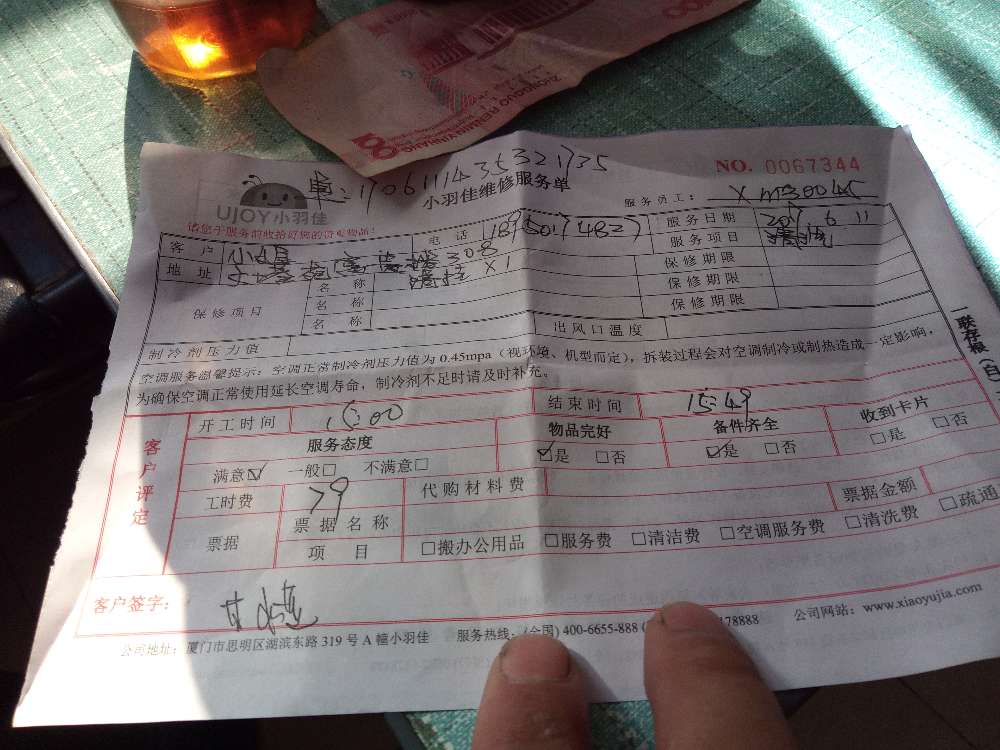 100
ZHONGGUO RENMINYINHANG
单:1706111435321735
NO. 0067344
UJOY小羽佳
小羽佳维修服务单
服务员工:
请您于服务前收拾好您的贵重物品!
客户 电话 服务日期 2017.6.11
地址 308 服务项目
名称 X1 保修期限
保修项目 名称 保修期限
名称 保修期限
制冷剂压力值 出风口温度
空调服务温馨提示:空调正常制冷剂压力值为0.45mpa(视环境、机型而定),拆装过程会对空调制冷或制热造成一定影响,
为确保空调正常使用延长空调寿命,制冷剂不足时请及时补充。
一联存根(白
客户评定
开工时间 15:00 结束时间 15:49
服务态度 物品完好 备件齐全 收到卡片
满意☑ 一般□ 不满意□ ☑是 □否 ☑是 □否 □是 □否
工时费 79 代购材料费 票据金额
票据 票据名称
项目 □搬办公用品 □服务费 □清洁费 □空调服务费 □清洗费 □疏通
客户签字:
公司地址:厦门市思明区湖滨东路319号A幢小羽佳 服务热线:(全国)400-6655-888 178888 公司网站:www.xiaoyujia.com